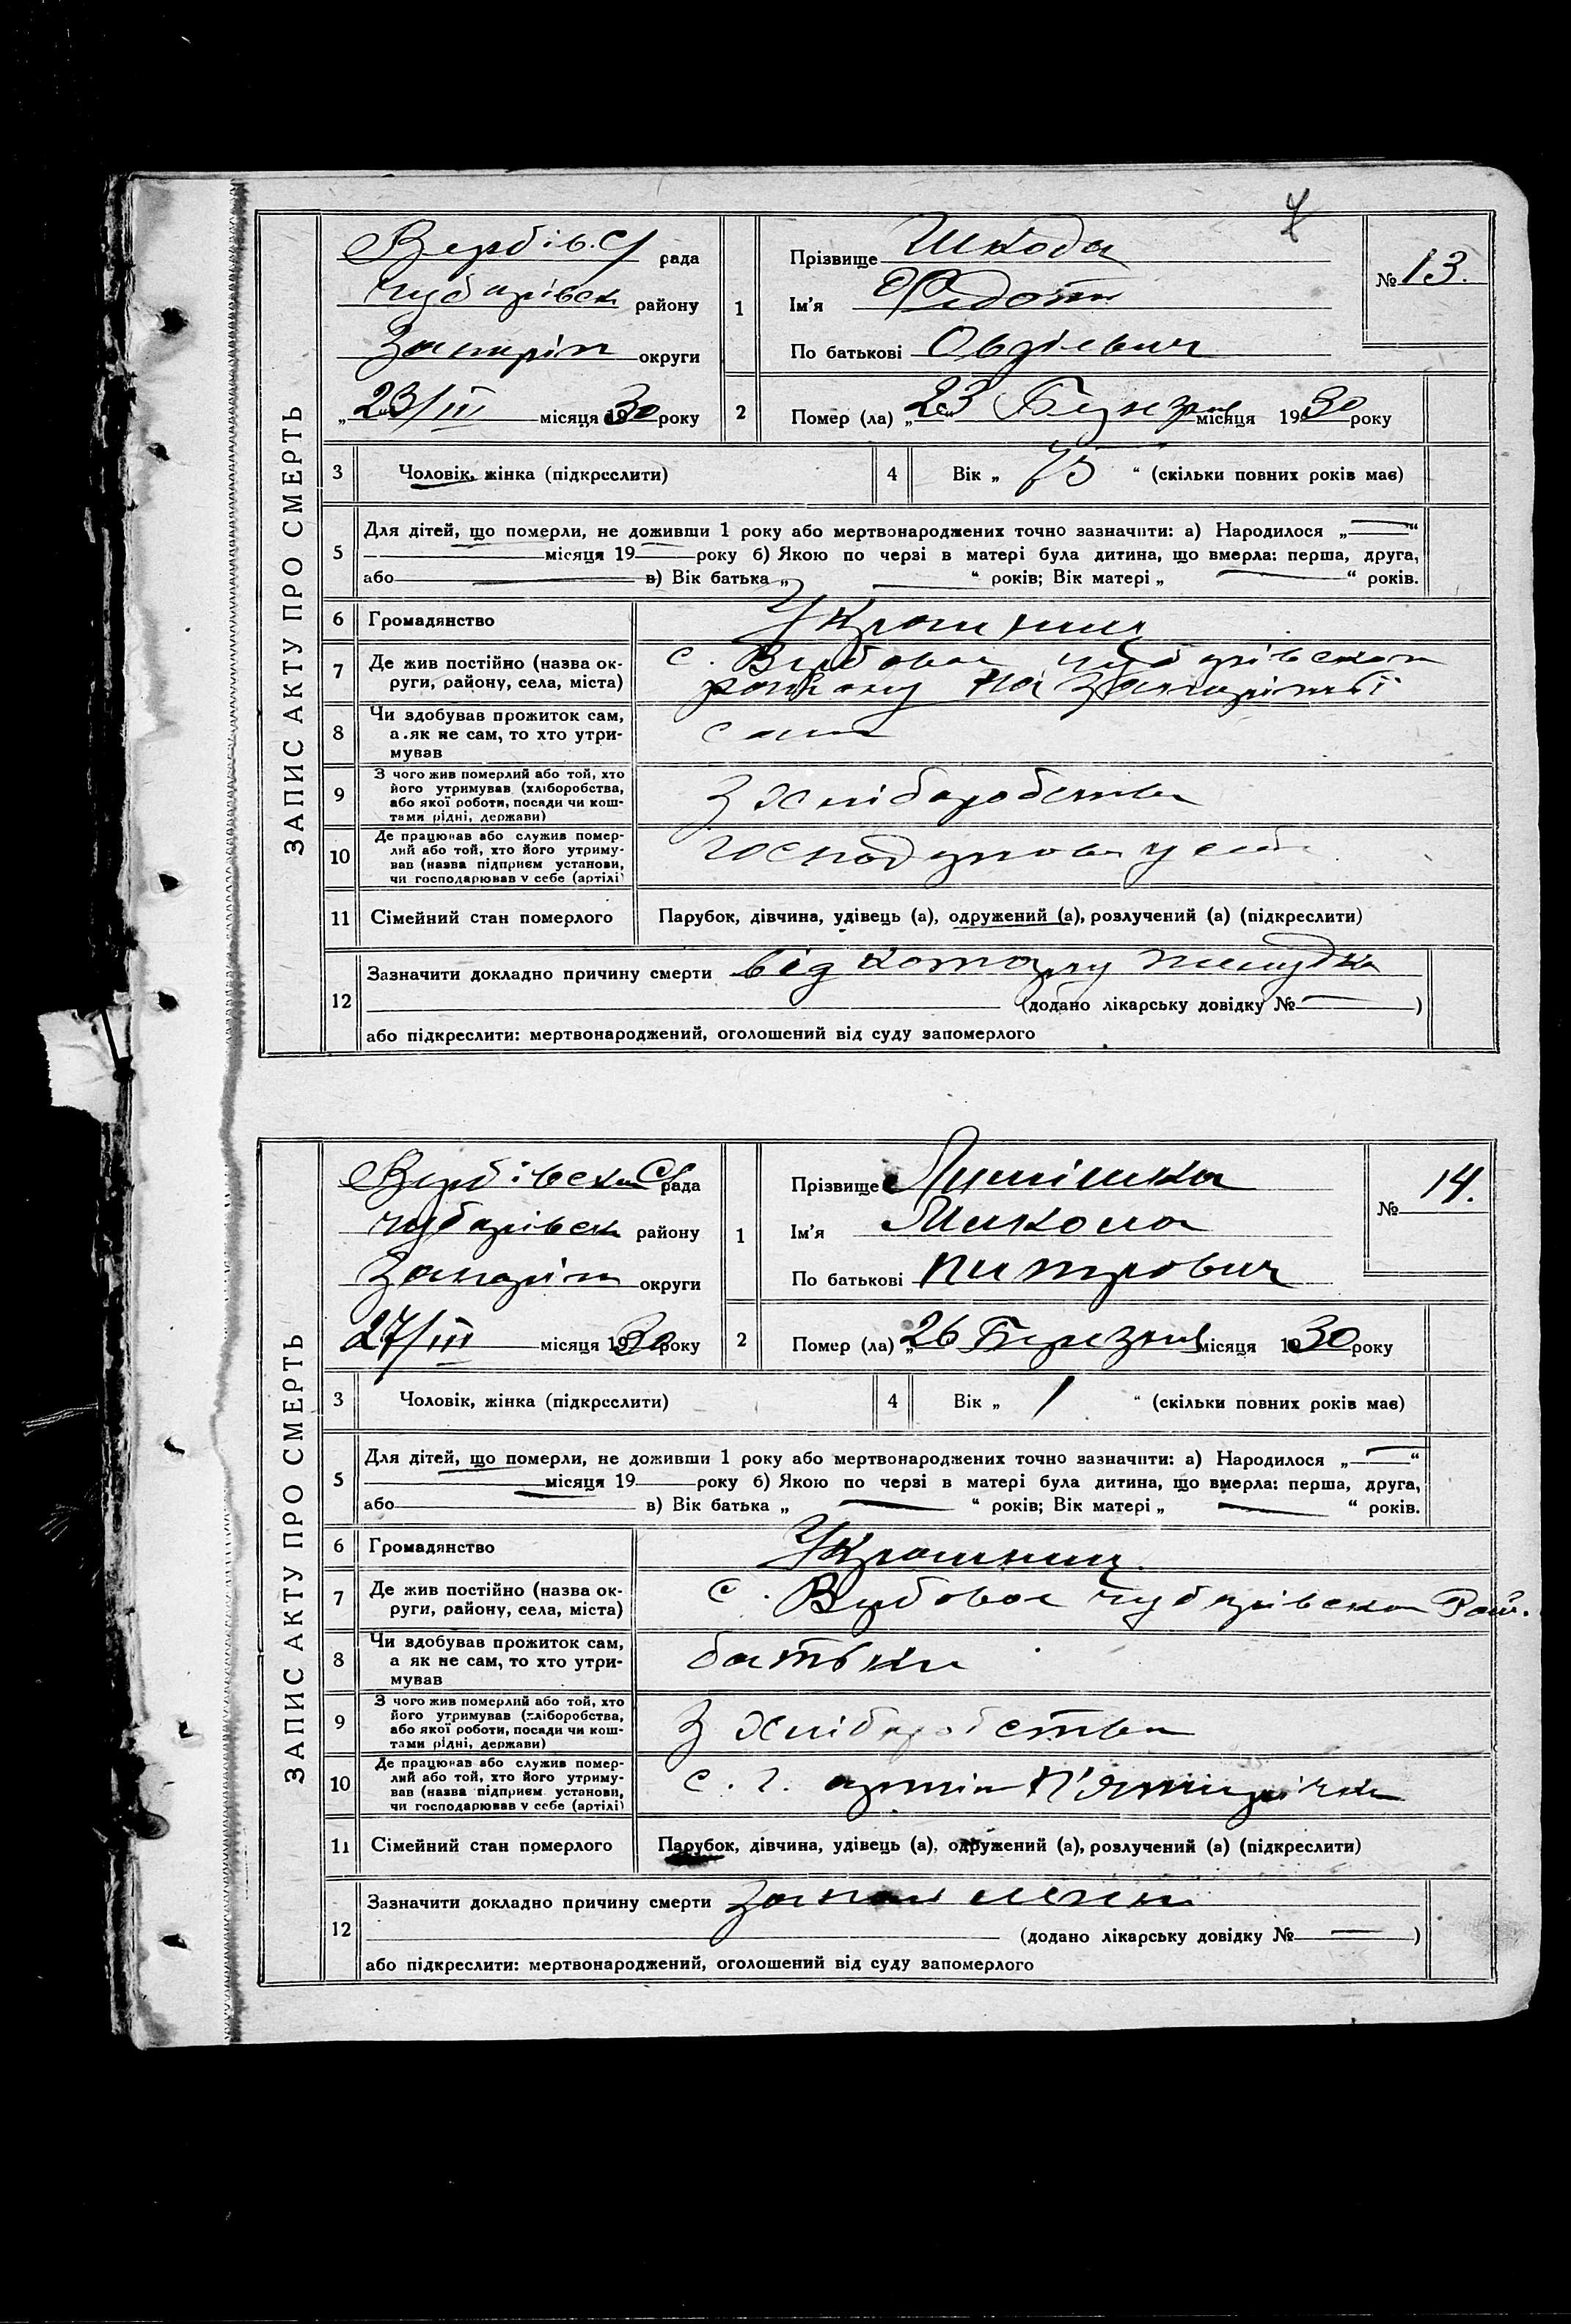 ЗАПИС АКТУ ПРО СМЕРТЬ
Вербів. С/ рада
Чубарівськ району
Запоріж округи
„23/III місяця 1930 року
1
Прізвище Шкода
Ім'я Федот
По батькові
№ 13.
2 Помер (ла) „23 Березня місяця 1930 року
3 Чоловік, жінка (підкреслити)
4 Вік „ 75 “ (скільки повних років має)
5
Для дітей, що померли, не доживши 1 року або мертвонароджених точно зазначити: а) Народилося „ “
місяця 19 року б) Якою по черзі в матері була дитина, що вмерла: перша, друга,
або в) Вік батька „ “ років; Вік матері „ “ років.
6 Громадянство Украинец
7 Де жив постійно (назва ок-
руги, району, села, міста)
с. Вербовое Чубарівського
району на Запоріжжі
8 Чи здобував прожиток сам,
а як не сам, то хто утри-
мував
сам
9 З чого жив померлий або той, хто
його утримував (хліборобства,
або якої роботи, посади чи кош-
тами рідні, держави)
З хліборобства
10 Де працював або служив помер-
лий або той, хто його утриму-
вав (назва підприєм установи,
чи господарював у себе (артілі)
господарював у себе
11 Сімейний стан померлого Парубок, дівчина, удівець (а), одружений (а), розлучений (а) (підкреслити)
12
Зазначити докладно причину смерти від катару желудка
(додано лікарську довідку № )
або підкреслити: мертвонароджений, оголошений від суду запомерлого
ЗАПИС АКТУ ПРО СМЕРТЬ
Вербівська С/ рада
Чубарівськ району
Запоріж округи
27/III місяця 1930 року
1
Прізвище
Ім'я Микола
По батькові Питрович
№ 14.
2 Помер (ла) „26 Березня місяця 1930 року
3 Чоловік, жінка (підкреслити)
4 Вік „ 1 “ (скільки повних років має)
5
Для дітей, що померли, не доживши 1 року або мертвонароджених точно зазначити: а) Народилося „ “
місяця 19 року б) Якою по черзі в матері була дитина, що вмерла: перша, друга,
або в) Вік батька „ “ років; Вік матері „ “ років.
6 Громадянство Украинец
7 Де жив постійно (назва ок-
руги, району, села, міста)
с. Вербовое Чубарівського Рай.
8 Чи здобував прожиток сам,
а як не сам, то хто утри-
мував
батьки
9 З чого жив померлий або той, хто
його утримував (хліборобства,
або якої роботи, посади чи кош-
тами рідні, держави)
З хліборобства
10 Де працював або служив помер-
лий або той, хто його утриму-
вав (назва підприєм установи,
чи господарював у себе (артілі)
с. г. артіль П'ятирічка
11 Сімейний стан померлого Парубок, дівчина, удівець (а), одружений (а), розлучений (а) (підкреслити)
12
Зазначити докладно причину смерти
(додано лікарську довідку № )
або підкреслити: мертвонароджений, оголошений від суду запомерлого